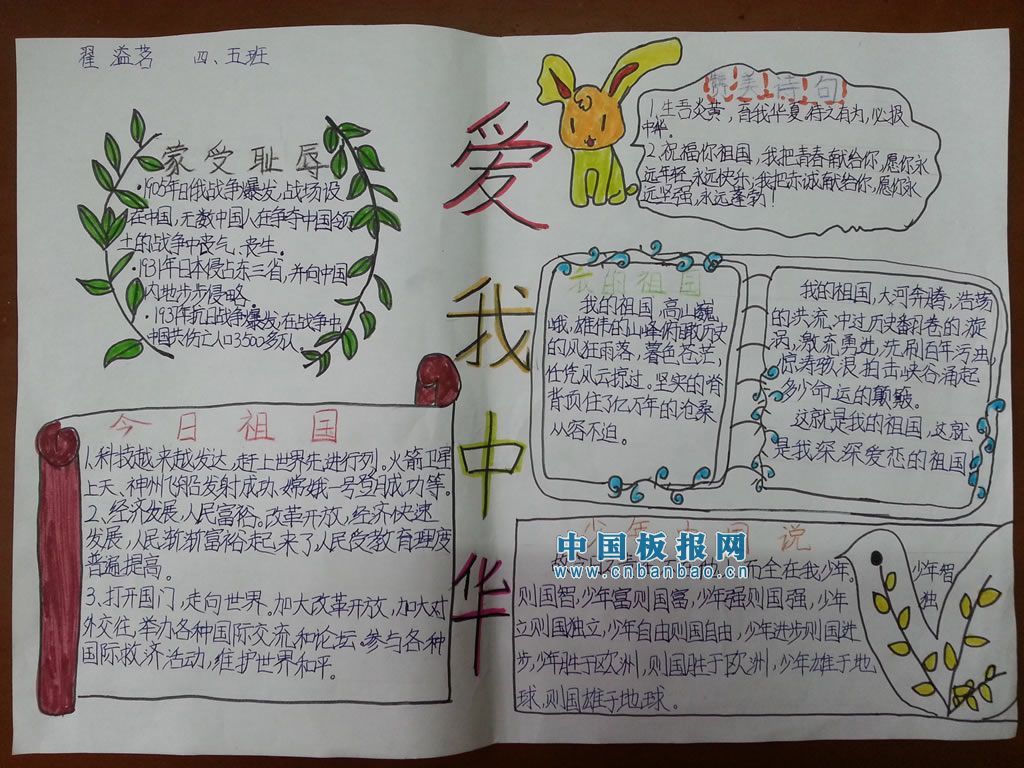 翟溢茗 四、五班
蒙受耻辱
·1905年日俄战争爆发,战场设
在中国,无数中国人在争夺中国领
土的战争中丧气、丧生。
·1931年日本侵占东三省,并向中国
内地步步侵略。
·1937年抗日战争爆发,在战争中
中国共伤亡人口3500多万人。
今日祖国
1、科技越来越发达,赶上世界先进行列。火箭卫星
上天、神州飞船发射成功、嫦娥一号登月成功等。
2、经济发展,人民富裕。改革开放,经济快速
发展,人民渐渐富裕起来了人民受教育程度
普遍提高。
3、打开国门,走向世界。加大改革开放,加大对
外交往,举办各种国际交流和论坛。参与各种
国际救济活动,维护世界和平。
爱
我
中
华
赞美诗句
1、生吾炎黄,育我华夏,待之有为,必报
中华。
2、祝福你祖国,我把青春献给你,愿你永
远年轻,永远快乐;我把赤诚献给你,愿你永
远坚强,永远蓬勃!
我的祖国
我的祖国,高山巍
峨,雄伟的山峰俯瞰历史
的风狂雨落,暮色苍茫,
任凭风云掠过。坚实的脊
背顶住了亿万年的沧桑
从容不迫。
我的祖国,大河奔腾,浩荡
的洪流,冲过历史翻卷的漩
涡,激流勇进,洗刷百年污浊,
惊涛骇浪拍击峡谷涌起
多少命运的颠簸。
这就是我的祖国,这就
是我深深爱恋的祖国
少年中国说
而全在我少年。少年智
则国智,少年富则国富,少年强则国强,少年独
立则国独立,少年自由则国自由,少年进步则国进
步,少年胜于欧洲,则国胜于欧洲,少年雄于地
球,则国雄于地球。
中国板报网
www.cnbanbao.cn